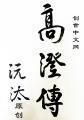 创世中文网
高澄傳
沅汰
原创